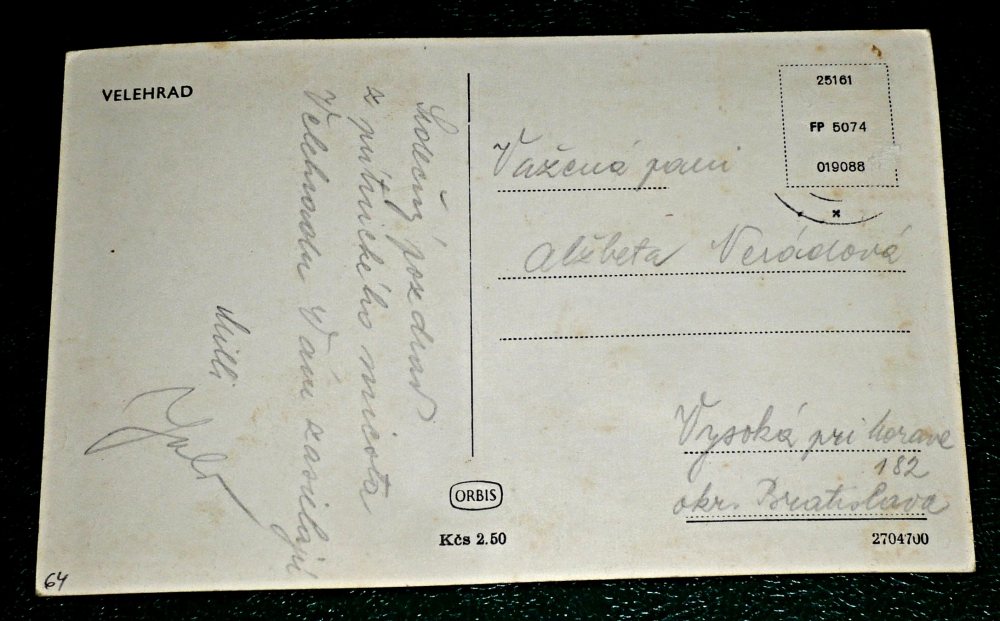 VELEHRAD
Srdečný pozdrav
z pútnického miesta
Velehradu Vám zasielajú
Milli
25161
FP 5074
019088
Vážená pani
Alžbeta Nerádová
Vysoká pri Morave
182
okr. Bratislava
ORBIS
Kčs 2.50
2704700
64